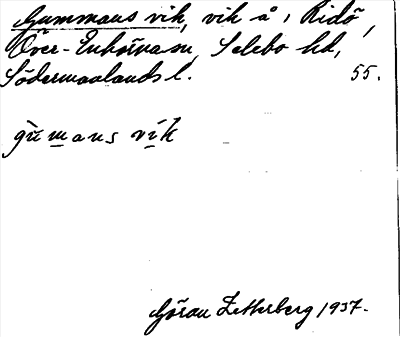 Gummans vik, vik å i Ridö,
Över-Enhörna sn, Selebo hd,
Södermanlands l. 55.
gùmans vík
Göran Zetterberg 1937.